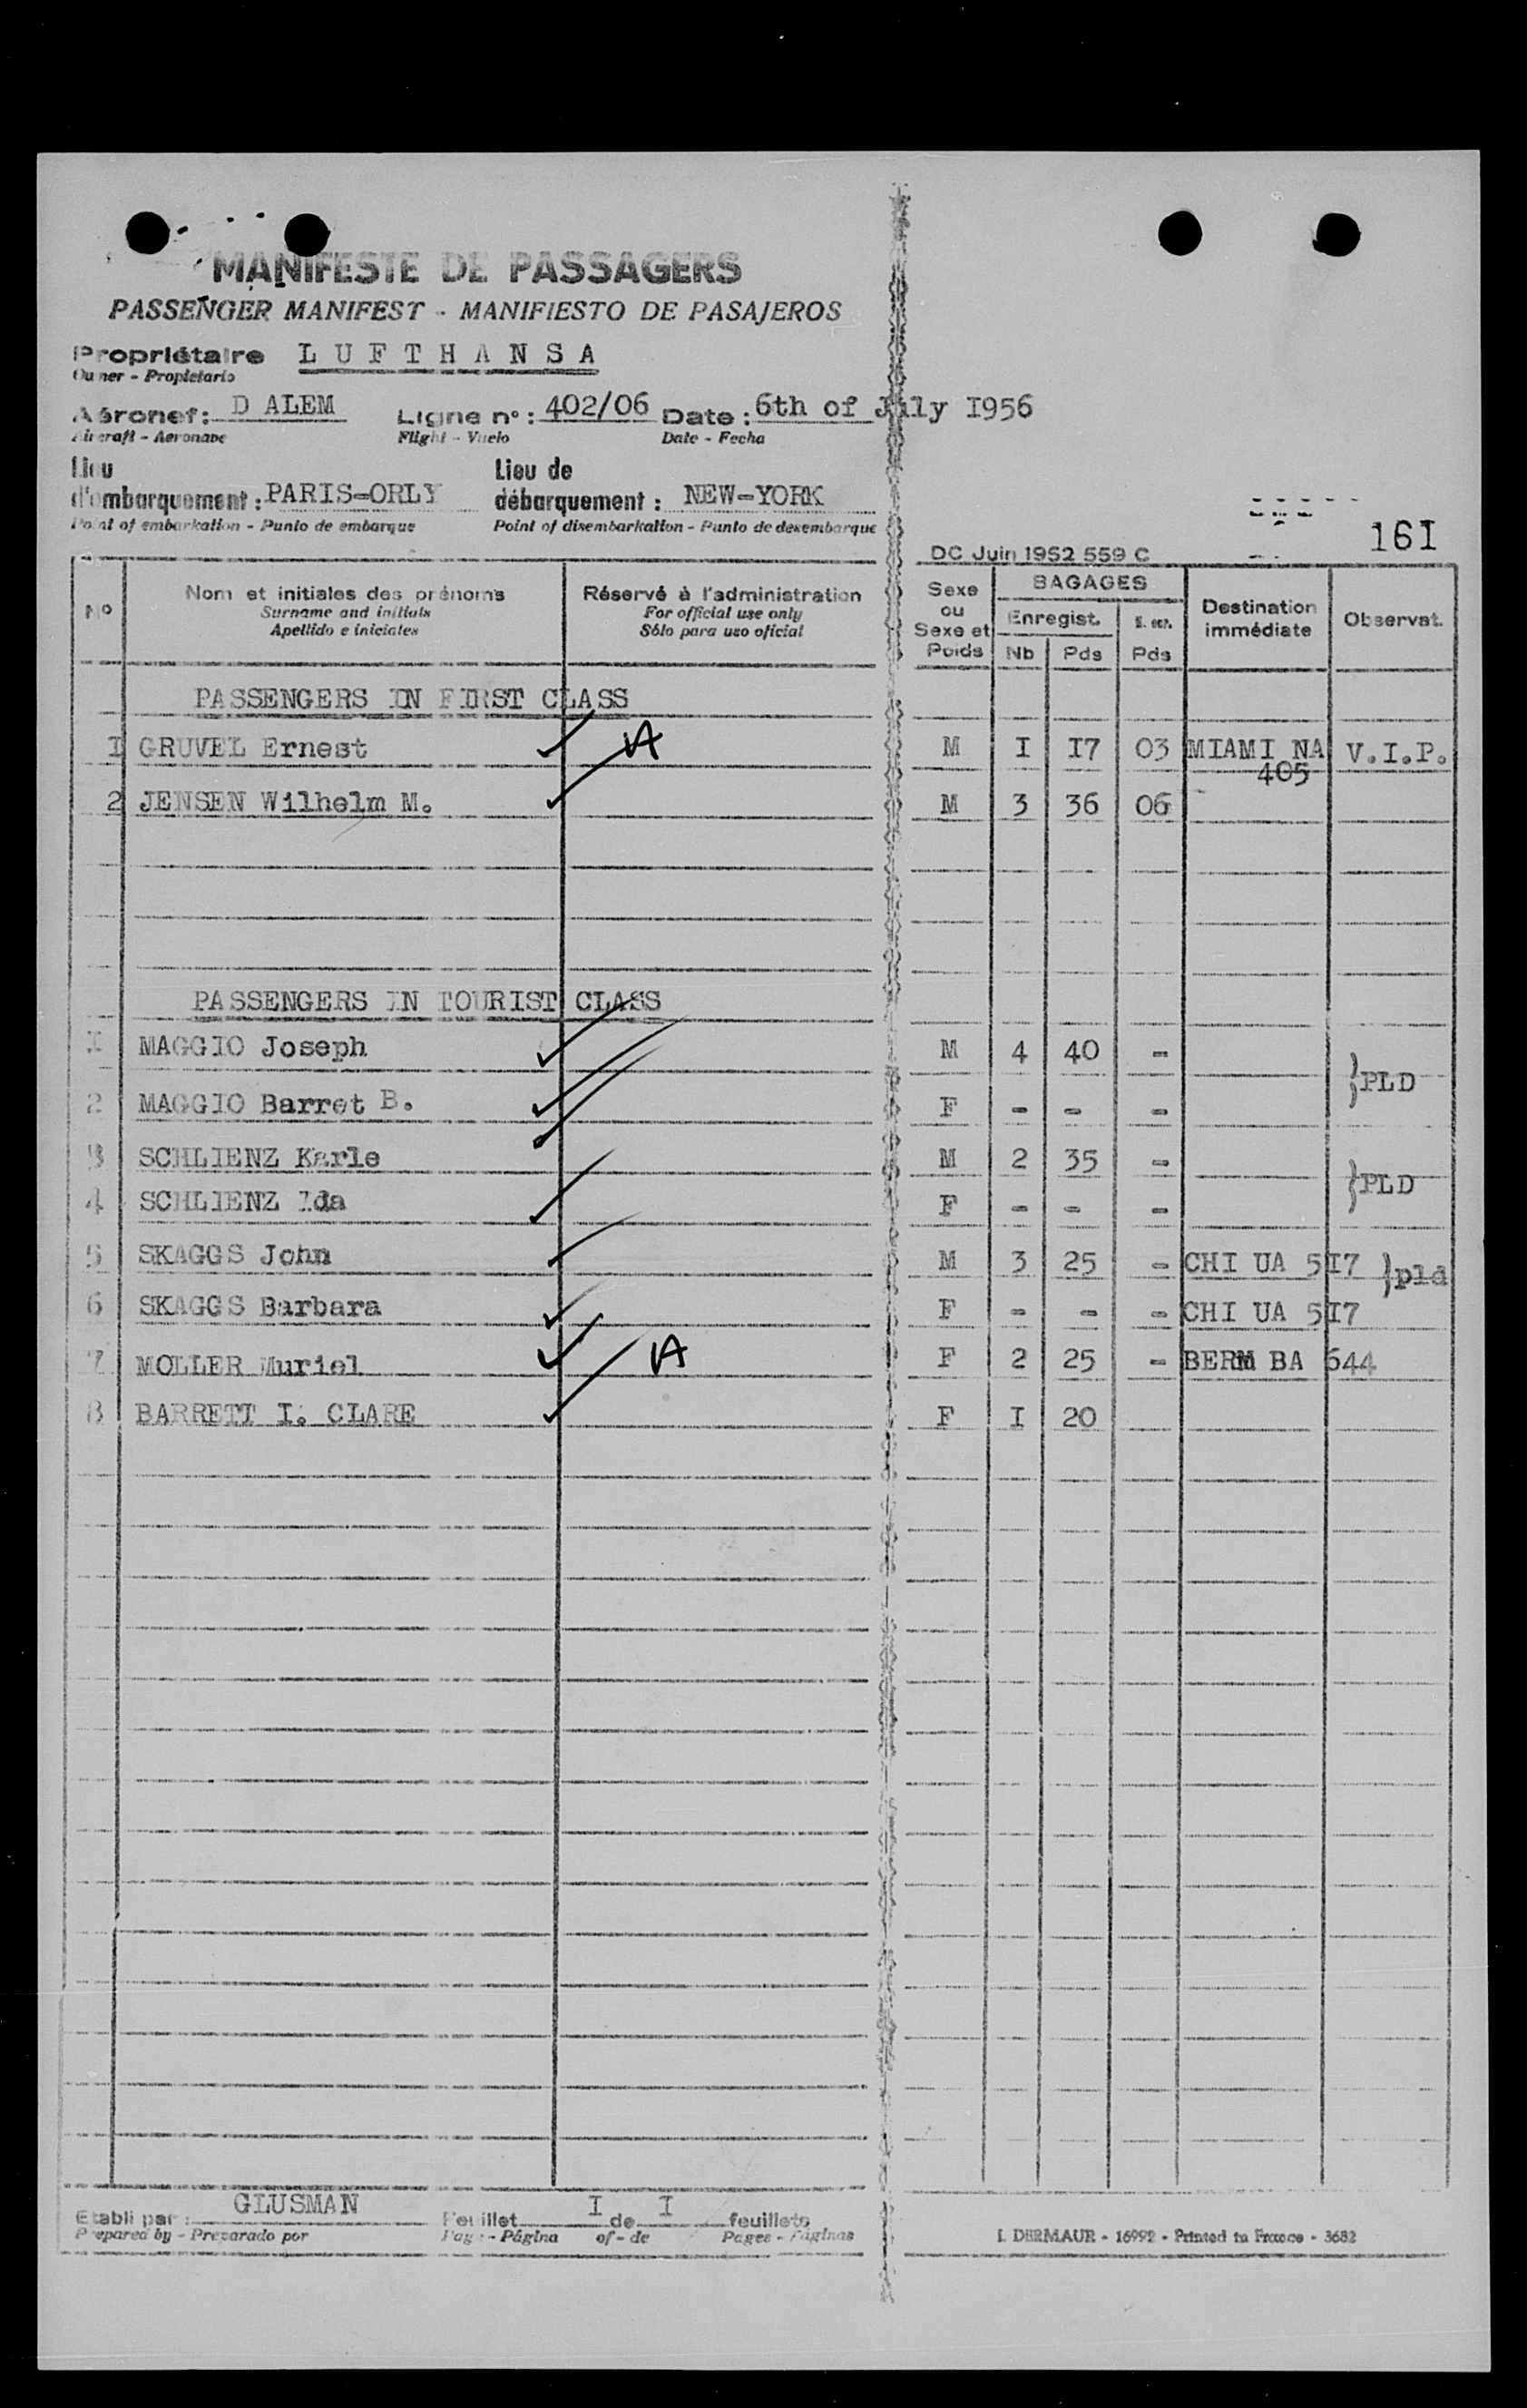 MANIFESTE DE PASSAGERS
PASSENGER MANIFEST - MANIFIESTO DE PASAJEROS
Propriétaire LUFTHANSA
Owner - Propietario
Aéronef: D ALEM Ligne n°: 402/06 Date: 6th of July I956
Aircraft - Aeronave Flight - Vuelo Date - Fecha
Lieu d'embarquement: PARIS-ORLY Lieu de débarquement: NEW-YORK
Point of embarkation - Punto de embarque Point of disembarkation - Punto de desembarque
16I
DC Juin 1952 559 C
N° Nom et initiales des prénoms Réservé à l'administration Sexe ou Sexe et Poids BAGAGES Destination immédiate Observat.
Surname and initials For official use only Enregist.
Apellido e iniciales Sólo para uso oficial Nb Pds Pds
PASSENGERS IN FIRST CLASS
I GRUVEL Ernest M I I7 03 MIAMI NA 405 V.I.P.
2 JENSEN Wilhelm M. M 3 36 06
PASSENGERS IN TOURIST CLASS
I MAGGIO Joseph M 4 40 -
2 MAGGIO Barret B. F - - - }PLD
3 SCHLIENZ Karle M 2 35 -
4 SCHLIENZ Ida F - - - }PLD
5 SKAGGS John M 3 25 - CHI UA 5I7 }pld
6 SKAGGS Barbara F - - - CHI UA 5I7
7 MOLLER Muriel F 2 25 - BERM BA 644
8 BARRETT I. CLARE F I 20
Etabli par: GLUSMAN Feuillet I de I feuillets
Prepared by - Preparado por Page - Página of - de Pages - Páginas
I. DERMAUR - 16992 - Printed in France - 3682